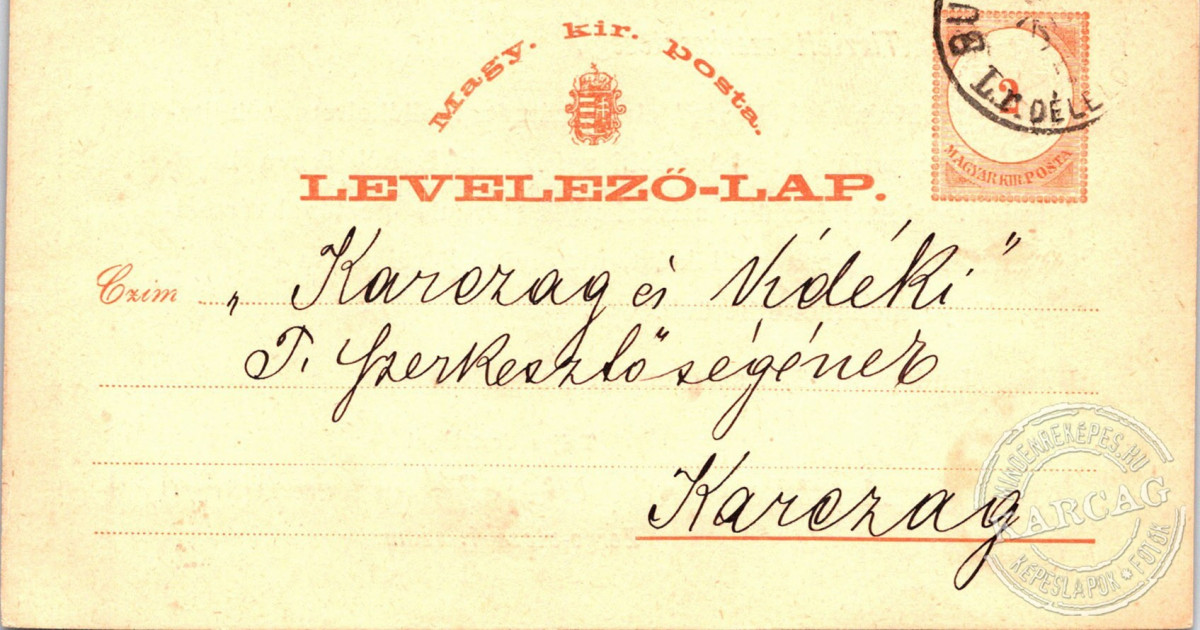 Magy. kir. posta.
LEVELEZŐ-LAP.
2
MAGYAR KIR. POSTA
DÉLE
Czim „Karczag és Vidéki"
T. Szerkesztőségének
Karczag
MINDENREKÉPES.HU
KARCAG
KÉPESLAPOK * FOTÓK